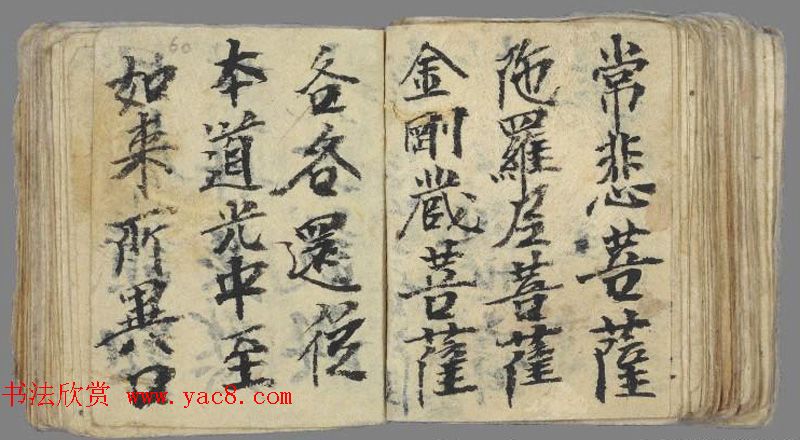 常悲菩薩
陁羅尼菩薩
金剛蔵菩薩
各各還從
本道光中至
如来所異口
60
书法欣赏 www.yac8.com